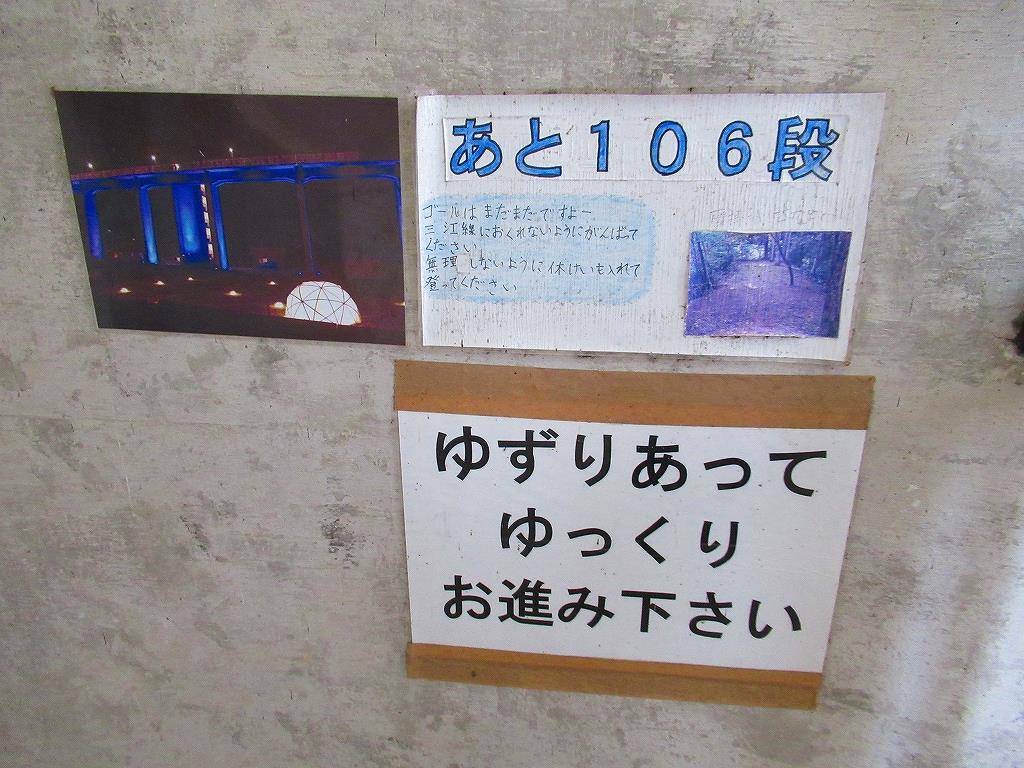 あと１０６段
ゴールはまだまだですよー
三江線におくれないようにがんばって
ください
無理 しないように休けいも入れて
登ってください
ゆずりあって
ゆっくり
お進み下さい